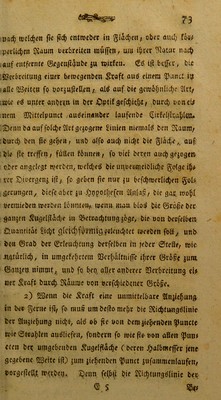 73
nach welchen sie sich entweder in Flächen, oder auch kör-
perlichen Raum verbreiten müssen, um ihrer Natur nach
auf entfernte Gegenstände zu wirken. Es ist besser, die
Verbreitung einer bewegenden Kraft aus einem Punct in
alle Weiten so vorzustellen, als auf die gewöhnliche Art,
wie es unter andern in der Optik geschieht, durch von ei-
nem Mittelpunct auseinander laufende Cirkelstrahlen.
Denn da auf solche Art gezogene Linien niemals den Raum,
durch den sie gehen, und also auch nicht die Fläche, auf
die sie treffen, füllen können, so viel deren auch gezogen
oder angelegt werden, welches die unvermeidliche Folge ih-
rer Divergenz ist, so geben sie nur zu beschwerlichen Fol-
gerungen, diese aber zu Hypothesen Anlaß, die gar wohl
vermieden werden könnten, wenn man blos die Größe der
ganzen Kugelfläche in Betrachtung zöge, die von derselben
Quantität Licht gleichförmig erleuchtet werden soll, und
den Grad der Erleuchtung derselben in jeder Stelle, wie
natürlich, in umgekehrtem Verhältnisse ihrer Größe zum
Ganzen nimmt, und so bey aller anderer Verbreitung ei-
ner Kraft durch Räume von verschiedener Größe.
2) Wenn die Kraft eine unmittelbare Anziehung
in der Ferne ist, so muß um desto mehr die Richtungslinie
der Anziehung nicht, als ob sie von dem ziehenden Puncte
wie Strahlen ausliefen, sondern so wie sie von allen Pun-
cten der umgebenden Kugelfläche (deren Halbmesser jene
gegebene Weite ist) zum ziehenden Punct zusammenlaufen,
vorgestellt werden. Denn selbst die Richtungslinie der
E 5
Be-